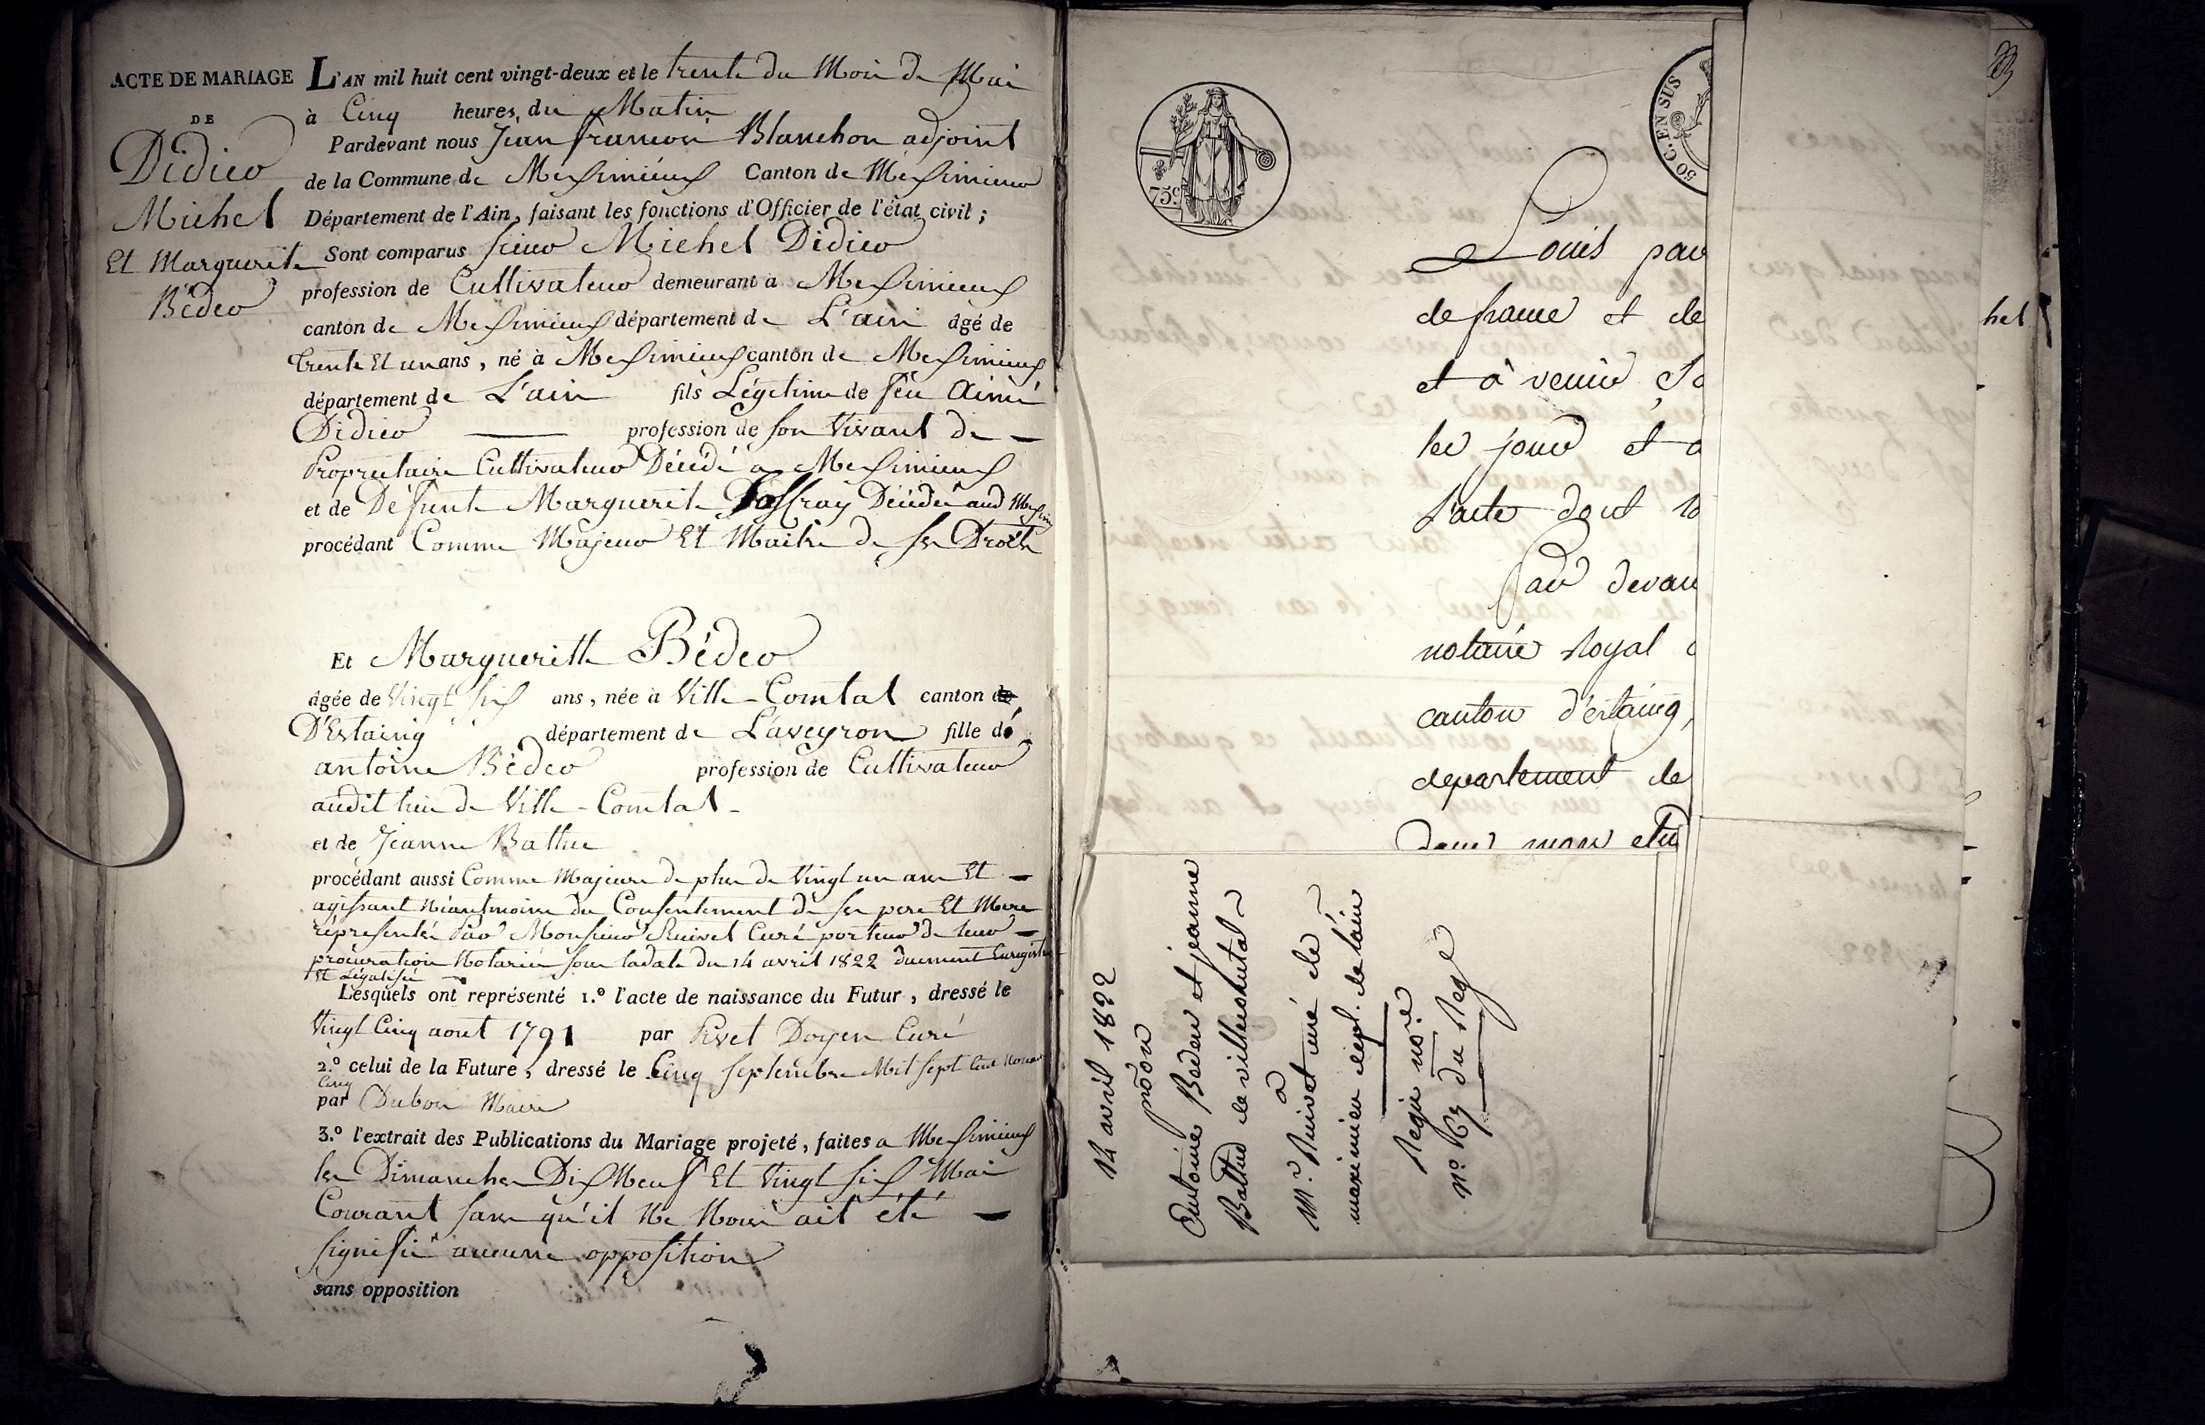 ACTE DE MARIAGE
DE
Didier
Michel
Et Marguerite
Béder
L'AN mil huit cent vingt-deux et le trente du Mois de Mai
à Cinq heures, du Matin
Pardevant nous Jean françois Blanchon adjoint
de la Commune de Meximieux Canton de Meximieux
Département de l'Ain, faisant les fonctions d'Officier de l'état civil ;
Sont comparus sieur Michel Didier
profession de Cultivateur demeurant à Meximieux
canton de Meximieux département de L'ain âgé de
trente Et un ans, né à Meximieux canton de Meximieux
département de L'ain fils Légitime de feu Aimé
Didier profession de son Vivant de
Propriétaire Cultivateur Décédé a Meximieux
et de Défunte Marguerite Décédée aud
procédant Comme Majeur Et Maitre de ses Droits
Et Margueritte Béder
âgée de Vingt six ans, née à Ville-Comtal canton de
D'Estaing département de L'aveyron fille de
antoine Béder profession de Cultivateur
audit lieu de Ville-Comtal
et de Jeanne Battue
procédant aussi Comme Majeure de plus de Vingt un ans Et
agissant Néantmoins du Consentement de ses pere Et Mere
représentés Par Monsieur Ruivet Curé porteur de leur
procuration Notariée sous la date du 14 avril 1822 duement Enregistrée
Et Légalisée
Lesquels ont représenté 1.º l'acte de naissance du Futur, dressé le
Vingt Cinq aout 1791 par Rivet Doyen Curé
2.º celui de la Future, dressé le Cinq septembre Mil sept Cent
Cinq
par Dubon Maire
3.º l'extrait des Publications du Mariage projeté, faites a Meximieux
les Dimanches Dix Neuf Et Vingt six Mai
Courant sans qu'il Ne Nous ait été
signifié aucune opposition
sans opposition
75 c.
50 C. EN SUS
Louis par
de france et de
et à venir, S
les jour et a
l'acte dont
Par devan
notaire Royal
canton d'estaing,
departement de
dans mon etu
14 avril 1822
pròòn
Antoine Beder et jeanne
Battue de villecomtal
a
Mr. Ruivet curé de
meximieu dept. de l'ain
Regis nore.
nº. 63 du Rege
hel